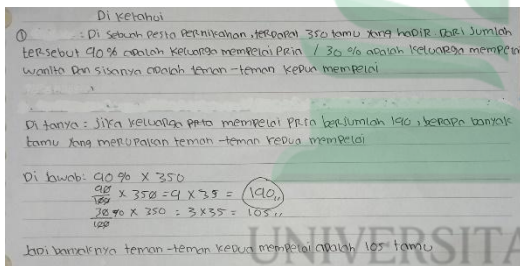 Di ketahoi
① : Di sebuah pesta pernikahan, terdapat 350 tamu yang hadir. Dari Jumlah
tersebut 90% adalah keluarga mempelai pria / 30% adalah keluarga mempelai
wanita dan sisanya adalah teman-teman kedua mempelai
Di tanya : Jika keluarga pria mempelai pria berjumlah 190, berapa banyak
tamu yang merupakan teman-teman kedua mempelai
Di Jawab: 90% X 350
90/100 X 350 = 9 X 35 = 190,,
30%/100 X 350 : 3X35 = 105,,
Jadi banyaknya teman-teman kedua mempelai adalah 105 tamu
UNIVERSITA